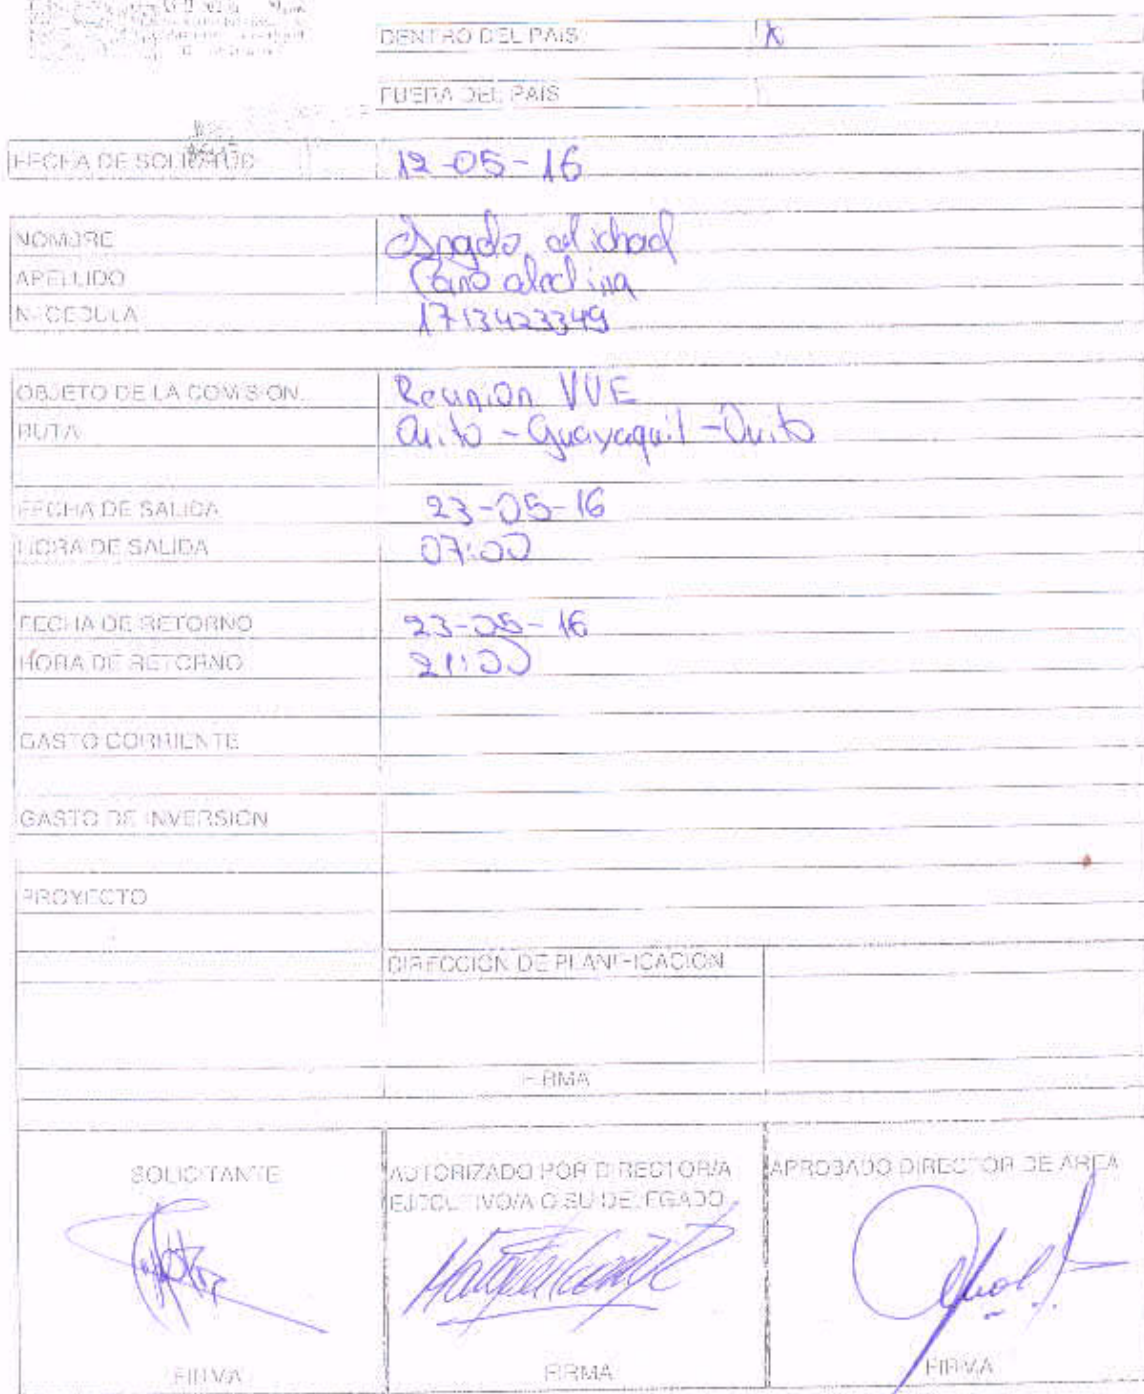 DENTRO DEL PAIS X
FUERA DEL PAIS
FECHA DE SOLICITUD 12-05-16
NOMBRE Angelo Michael
APELLIDO Cano Medina
N° CEDULA 1713423349
OBJETO DE LA COMISION Reunion VUE
RUTA Quito - Guayaquil - Quito
FECHA DE SALIDA 23-05-16
HORA DE SALIDA 07:00
FECHA DE RETORNO 23-05-16
HORA DE RETORNO 21:00
GASTO CORRIENTE
GASTO DE INVERSION
PROYECTO
DIRECCION DE PLANIFICACION
FIRMA
SOLICITANTE
AUTORIZADO POR DIRECTOR/A
EJECUTIVO/A O SU DELEGADO
APROBADO DIRECTOR DE AREA
FIRMA
FIRMA
FIRMA